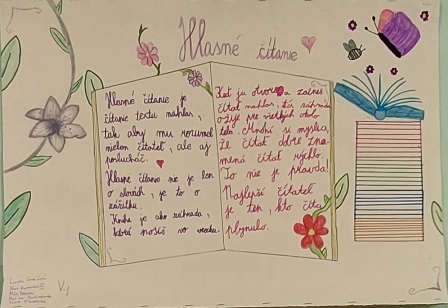 Hlasné čítanie
Hlasné čítanie je
čítanie textu nahlas,
tak aby mu rozumel
nielen čitateľ, ale aj
poslucháč.
Hlasné čítanie nie je len
o slovách, je to o
zážitku.
Kniha je ako záhrada,
ktorú nosíš vo vrecku.
Keď ju otvoríš a začneš
čítať nahlas, tá záhrada
ožije pre všetkých okolo
teba. Mnohí si myslia,
že čítať dobre zna-
mená čítať rýchlo.
To nie je pravda!
Najlepší čitateľ
je ten, kto číta
plynulo.